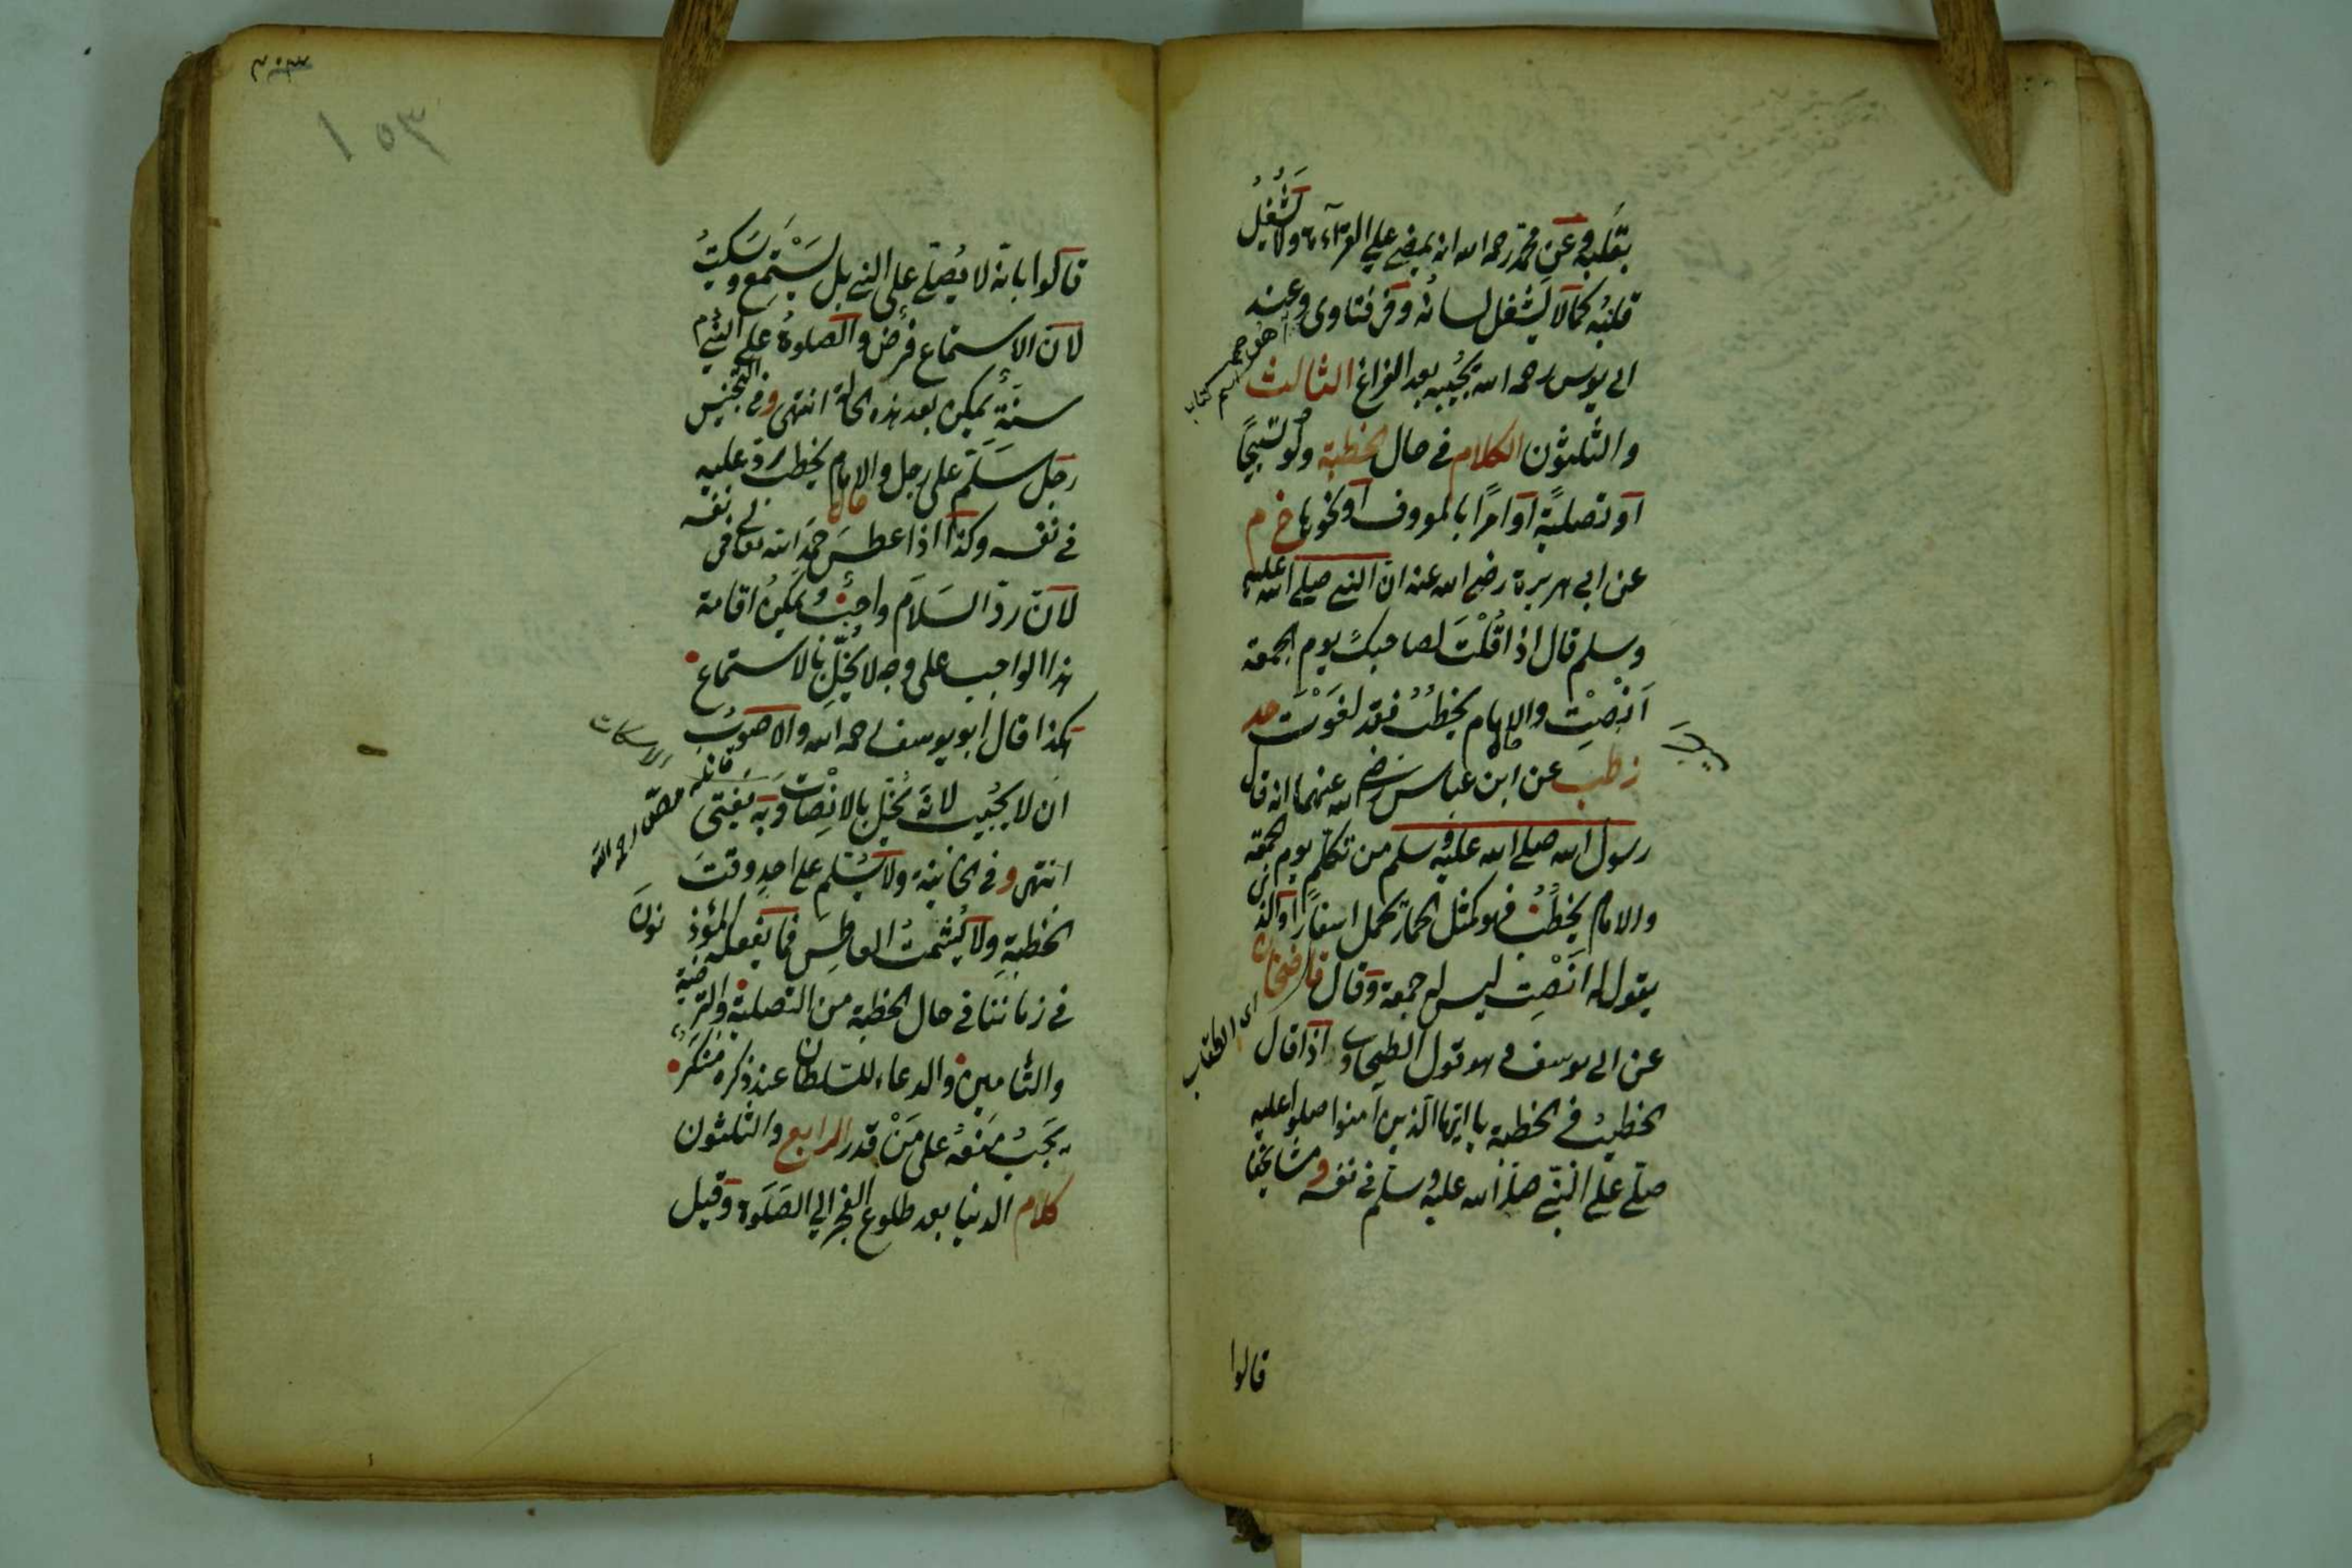 بقلبه وعن محمد رحمه الله انه يمضي على القراءة ولا يشغل
قلبه كما لا يشغل لسانه وفي فتاوى وعند
ابي يوسف رحمه الله يجيبه بعد الفراغ الثالث
والثلثون الكلام في حال الخطبة ولو تسبيحًا
او تصلية او امرًا بالمعروف او نحوها خ م
عن ابي هريرة رضي الله عنه ان النبي صلى الله عليه
وسلم قال اذا قُلْتَ لصاحبك يوم الجمعة
اَنْصِتْ والامام يخطبُ فقد لَغَوْتَ حد
ز طب عن ابن عباس رضي الله عنهما انه قال
رسول الله صلى الله عليه وسلم من تكلم يوم الجمعة
والامام يخطبُ فهو كمثل الحمار يحمل اسفارًا والذي
يقول له اَنْصِت ليس له جمعة وقال قاضيخان
عن ابي يوسف وهو قول الطحاوي اذا قال
الخطيبُ في الخطبة يا ايها الذين آمنوا صلوا عليه
صلى على النبي صلى الله عليه وسلم في نفسه ومشايخنا
اي الطحاوي
قالوا
قالوا بانه لا يُصلي على النبي بل يَسْتمع ويَسكتُ
لان الاستماع فرض والصلوة على النبي م
سنة يمكن بعد هذه الحالة انتهى وفي التجنيس
رجل سَلّم على رجل والامام يخطب رد عليه
في نفسه وكذا اذا عطسَ حمدَ الله تعالى في نفسه
لان ردّ السَلام واجبٌ ويمكن اقامة
هذا الواجب على وجه لا يُخِلّ بالاستماع
هكذا قال ابو يوسف رحمه الله والاصوبُ
ان لا يُجيب لانه يُخِل بالانصات وبه يفتى
انتهى وفي الخانية ولا يُسَلّم على احدٍ وقتَ
الخطبةِ ولا يُشمتُ العاطس فما يفعله المؤذ
نون
في زماننا في حال الخطبة من التصلية والترضية
والتأمين والدعاء للسلطان عند ذكره منكَرٌ
يجَبُ مَنعهُ على مَنْ قدر الرابع والثلثون
كلام الدنيا بعد طلوع الفجر الى الصَلَوة وقيل